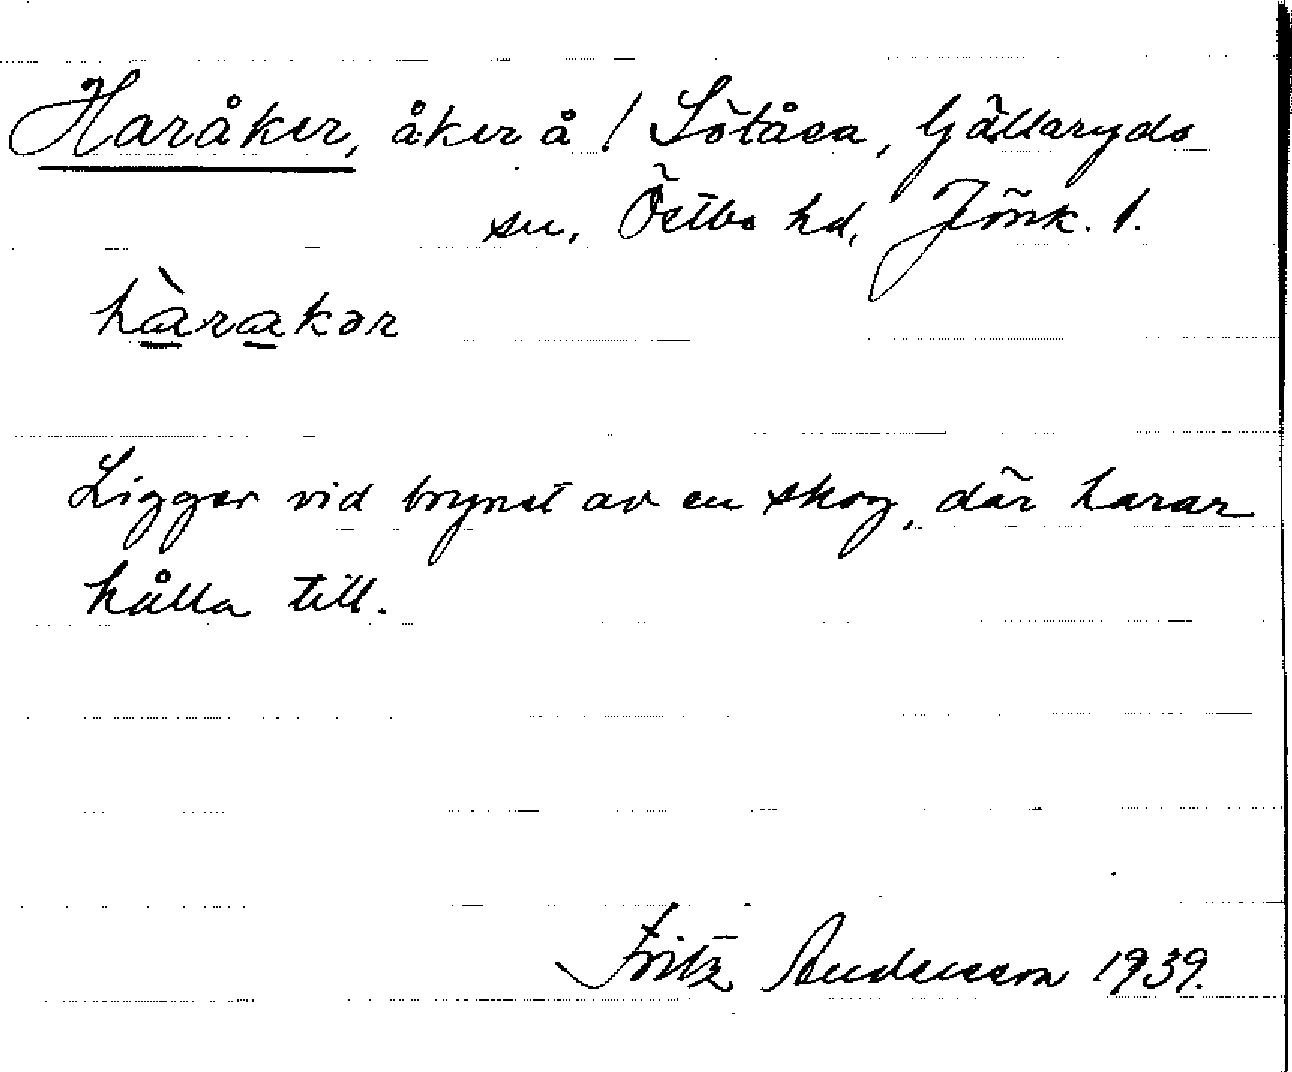 Haråker, åker å / Sötåsa, Gällaryds
sn, Östbo hd, Jönk. l.
hàrakər
Ligger vid brynet av en skog, där harar
hålla till.
Fritz Andersson 1939.